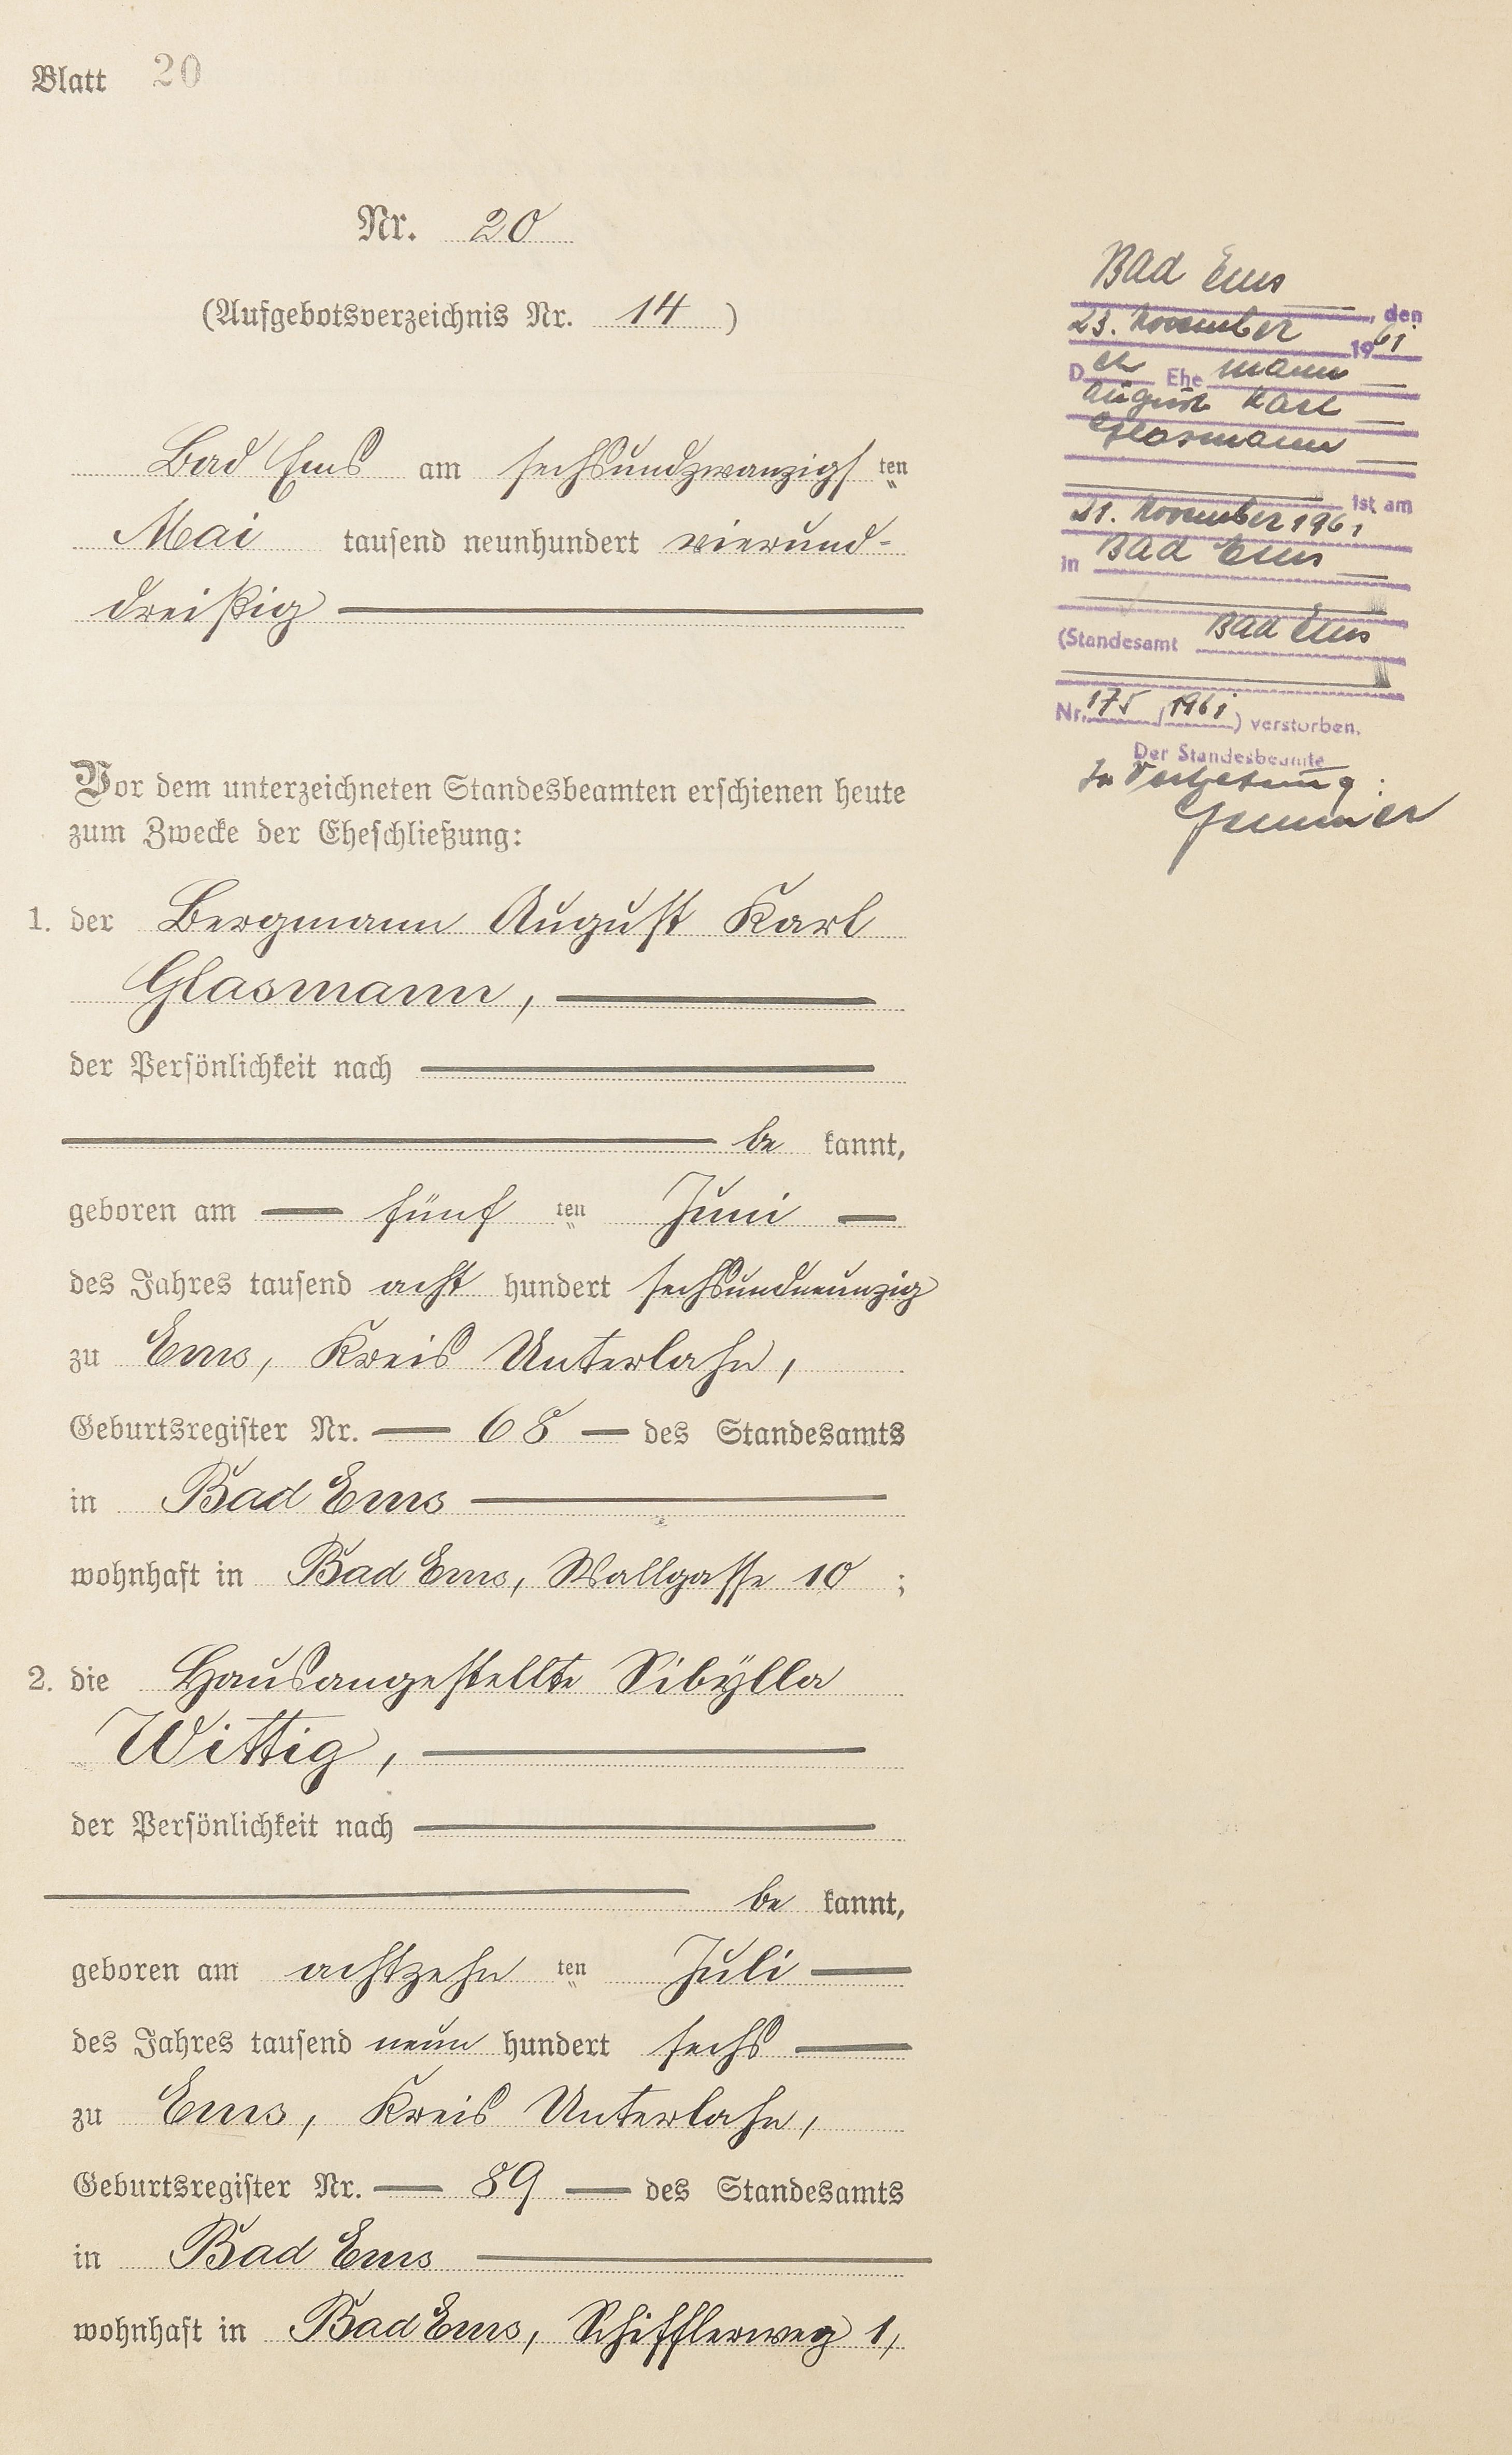 Blatt 20
Nr. 20
(Aufgebotsverzeichnis Nr. 14 )
Bad Ems am sechsundzwanzigsten
Mai tausend neunhundert vierund-
dreißig
Vor dem unterzeichneten Standesbeamten erschienen heute
zum Zwecke der Eheschließung:
1. der Bergmann August Karl
Glasmann,
der Persönlichkeit nach
be kannt,
geboren am fünf ten Juni
des Jahres tausend acht hundert sechsundneunzig
zu Ems, Kreis Unterlahn,
Geburtsregister Nr. 68 des Standesamts
in Bad Ems
wohnhaft in Bad Ems, Wallgasse 10 ;
2. die Hausangestellte Sibÿlla
Wittig,
der Persönlichkeit nach
be kannt,
geboren am achtzehn ten Juli
des Jahres tausend neun hundert sechs
zu Ems, Kreis Unterlahn,
Geburtsregister Nr. 89 des Standesamts
in Bad Ems
wohnhaft in Bad Ems, Schifflerweg 1,
Bad Ems, den
23. November 1961
Der Ehemann
August Karl
Glasmann
ist am
21. November 1961
in Bad Ems
(Standesamt Bad Ems
Nr. 175 / 1961) verstorben.
Der Standesbeamte
In Vertretung: